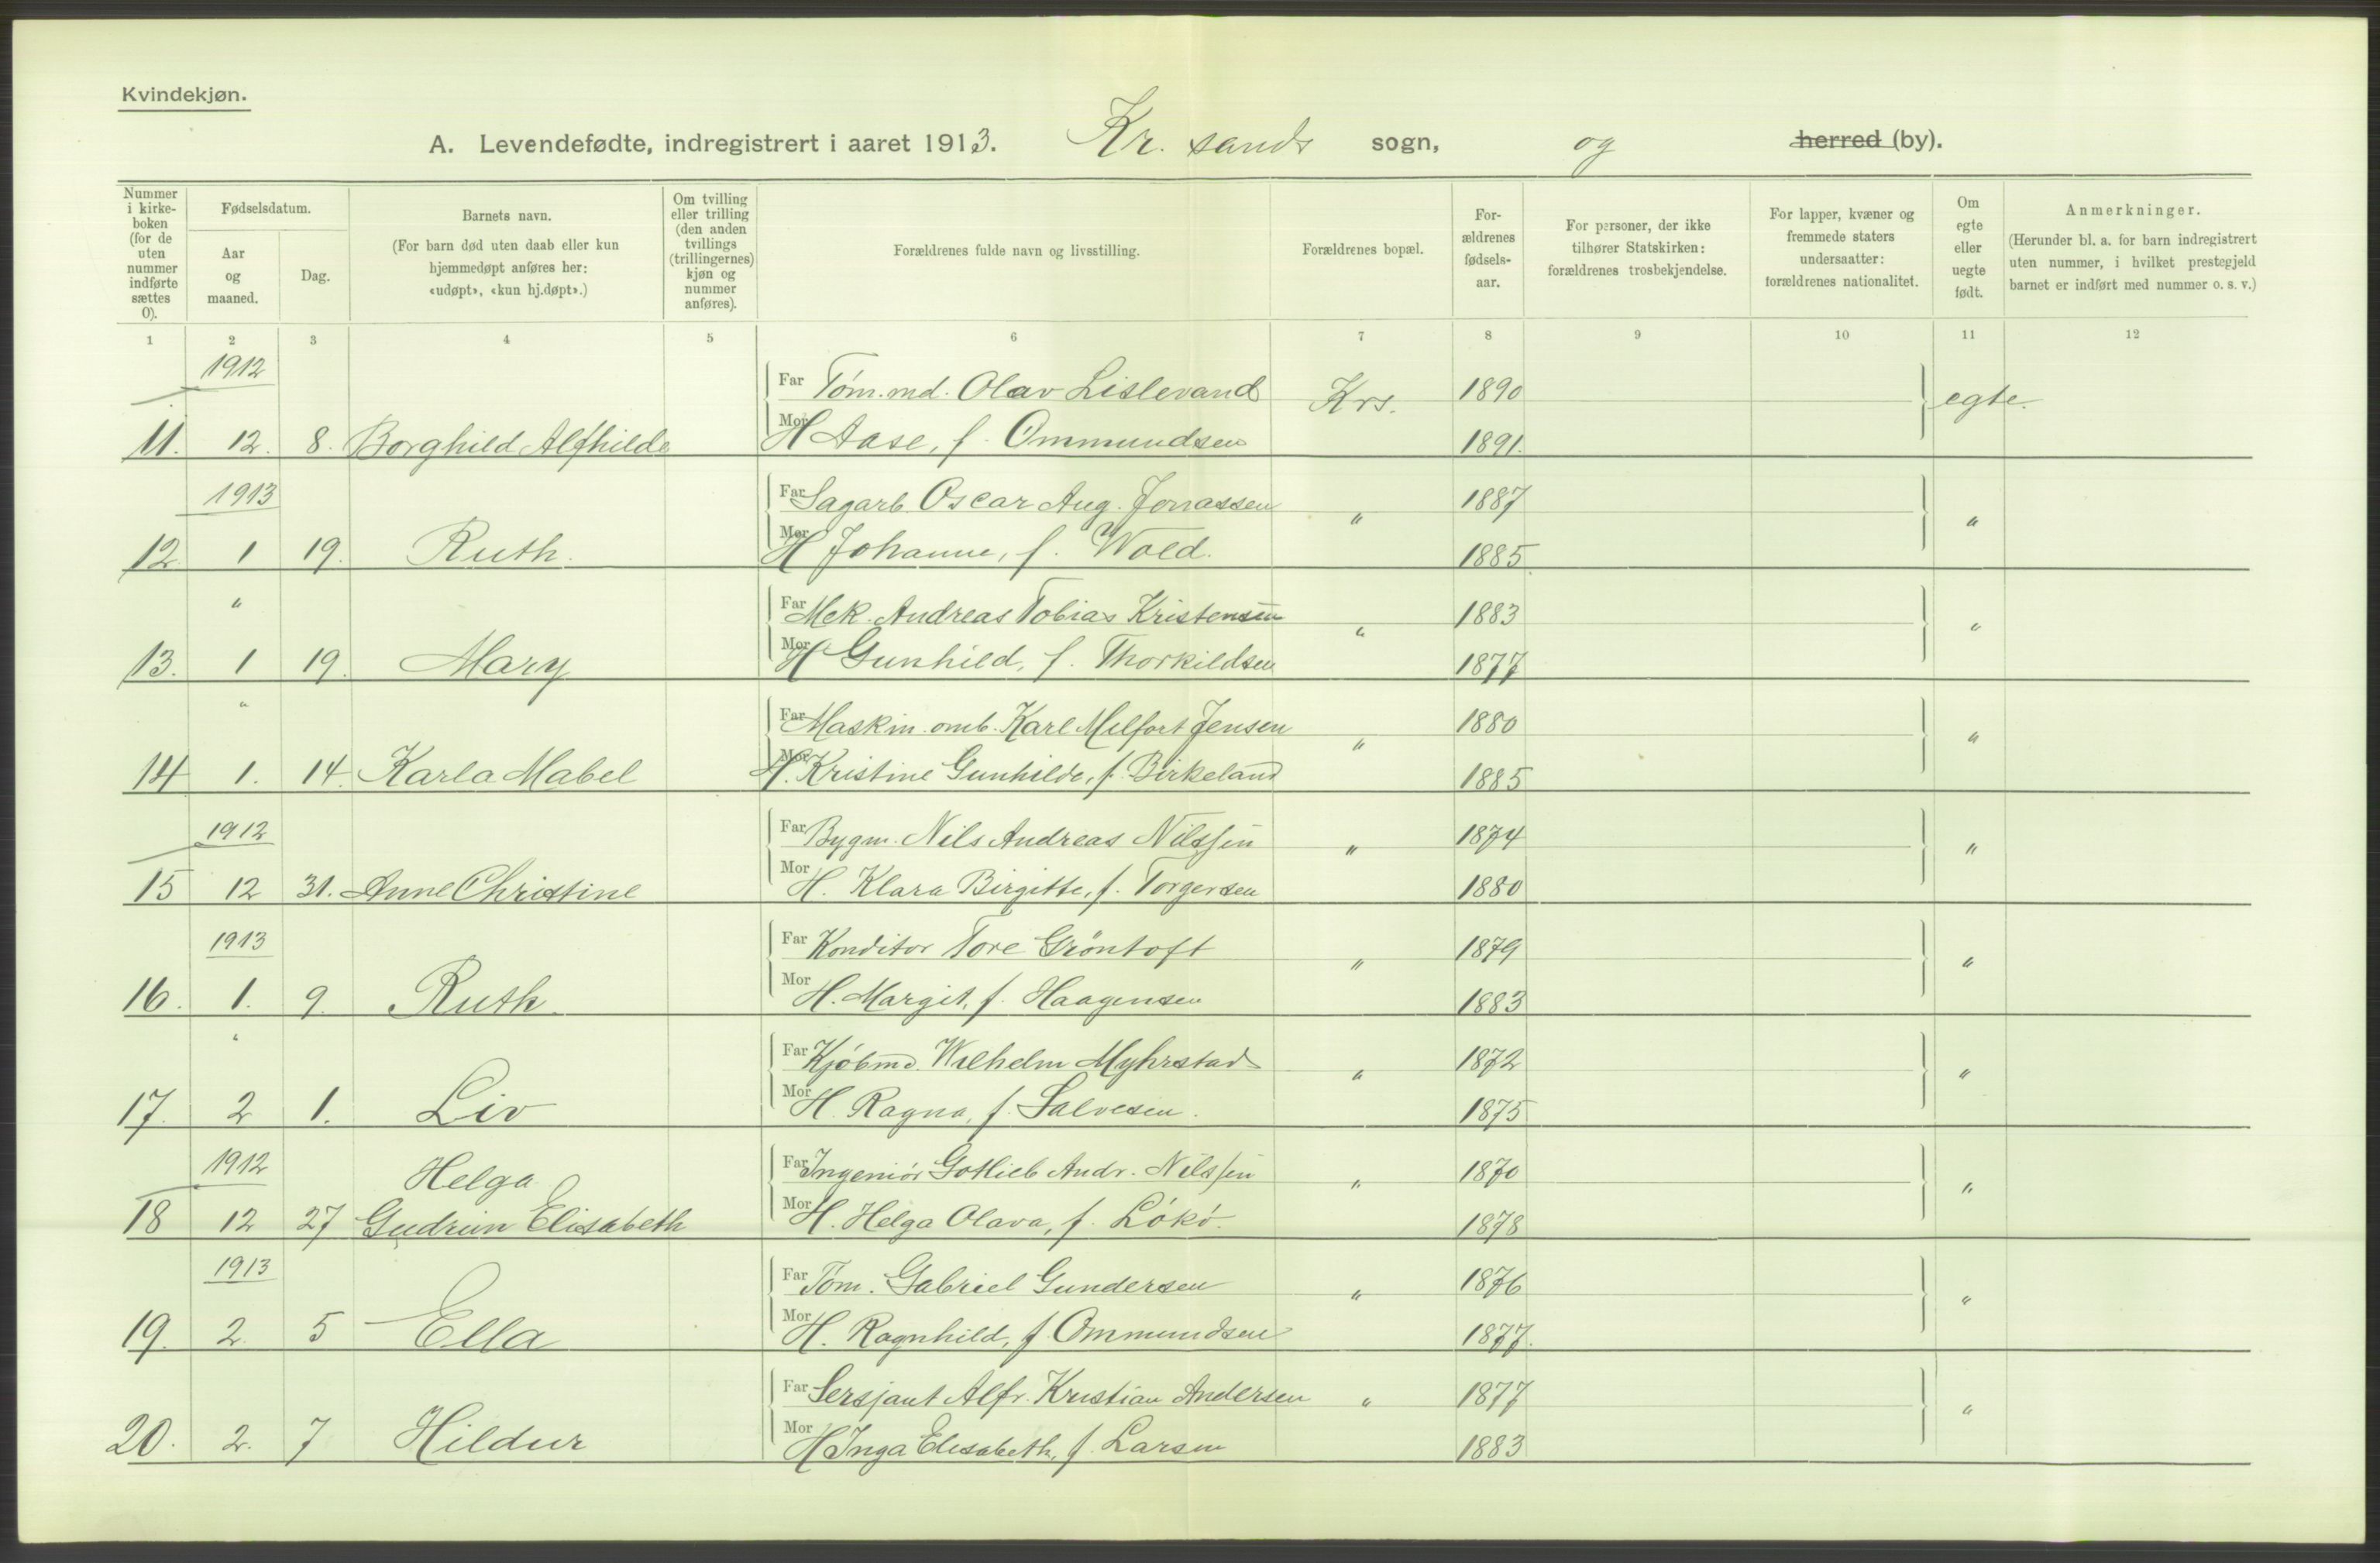 Kvindekjøn.
A. Levendefødte, indregistrert i aaret 1913. Kr. sands sogn, og herred (by).
Nummer i kirke- boken (for de uten nummer indførte sættes 0).
Fødselsdatum.
Aar og maaned.
Dag.
Barnets navn.
(For barn død uten daab eller kun hjemmedøpt anføres her: «udøpt», «kun hj.døpt».)
Om tvilling eller trilling (den anden tvillings (trillingernes) kjøn og nummer anføres).
Forældrenes fulde navn og livsstilling.
Forældrenes bopæl.
For- ældrenes fødsels- aar.
For personer, der ikke tilhører Statskirken: forældrenes trosbekjendelse.
For lapper, kvæner og fremmede staters undersaatter: forældrenes nationalitet.
Om egte eller uegte født.
Anmerkninger.
(Herunder bl. a. for barn indregistrert uten nummer, i hvilket prestegjeld barnet er indført med nummer o. s. v.)
1 2 3 4 5 6 7 8 9 10 11 12
1912 Far Töm.md. Olav Lislevand Krs. 1890 egte.
11. 12. 8. Borghild Alfhilde Mor H Aase, f. Ommundsen 1891.
1913 Far Sagarb Oscar Aug. Jonassen " 1887 "
12 1 19. Ruth. Mor H Johanne, f. Wold. 1885
" Far Mek. Andreas Tobias Kristensen " 1883 "
13. 1 19. Mary Mor H Gunhild, f. Thorkildsen 1877
" Far Maskin. omb. Karl Melfort Jensen " 1880 "
14 1. 14. Karla Mabel Mor H. Kristine Gunhilde, f. Birkeland 1885
1912 Far Bygm. Nils Andreas Nilssen " 1874 "
15 12 31. Anne Christine Mor H. Klara Birgitte, f. Torgersen 1880
1913 Far Konditor Tore Gröntoft " 1879 "
16. 1. 9. Ruth. Mor H. Margit, f. Haagensen 1883
" Far Kjöbmd. Wilhelm Myhrstad " 1872 "
17. 2 1. Liv Mor H. Ragna, f. Salvesen. 1875
1912 Helga Far Ingeniör Gotlieb Andr. Nilssen " 1870 "
18 12 27 Gudrun Elisabeth Mor H. Helga Olava, f. Lökö. 1878
1913 Far Töm. Gabriel Gundersen " 1876 "
19. 2. 5 Ella Mor H. Ragnhild, f. Ommundsen 1877.
Far Sersjant Alfr. Kristian Andersen " 1877 "
20. 2. 7 Hildur Mor H Inga Elisabeth, f. Larsen 1883